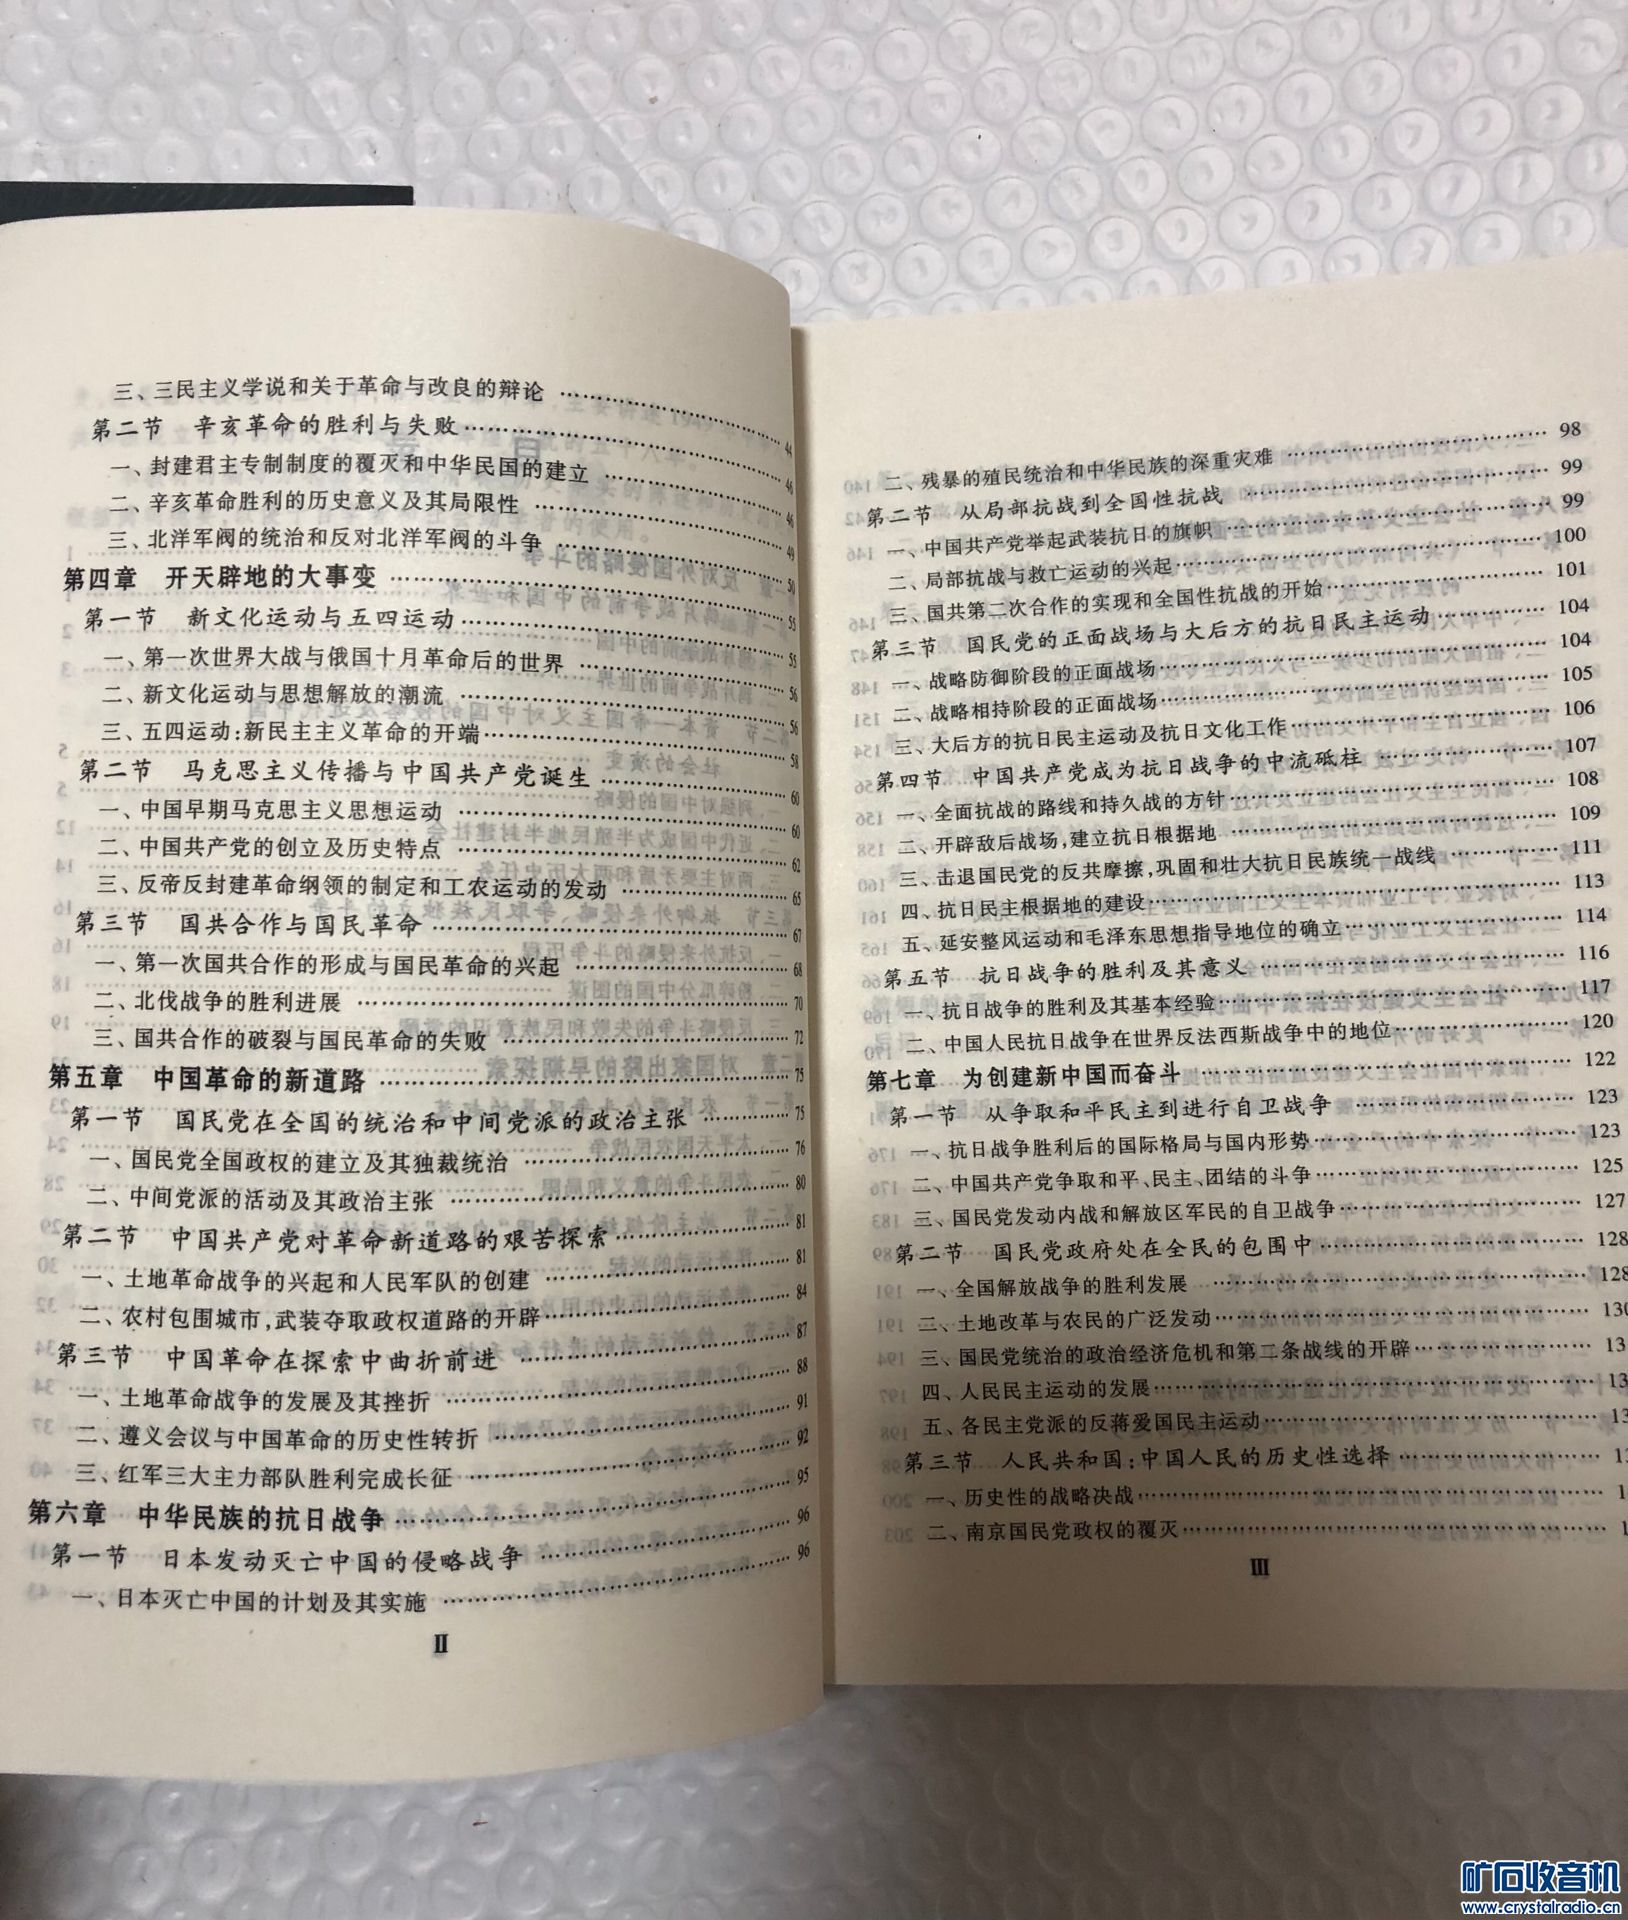 三、三民主义学说和关于革命与改良的辩论 …… 44
第二节 辛亥革命的胜利与失败 …… 46
一、封建君主专制制度的覆灭和中华民国的建立 …… 46
二、辛亥革命胜利的历史意义及其局限性 …… 49
三、北洋军阀的统治和反对北洋军阀的斗争 …… 50
第四章 开天辟地的大事变 …… 55
第一节 新文化运动与五四运动 …… 55
一、第一次世界大战与俄国十月革命后的世界 …… 56
二、新文化运动与思想解放的潮流 …… 56
三、五四运动:新民主主义革命的开端 …… 58
第二节 马克思主义传播与中国共产党诞生 …… 60
一、中国早期马克思主义思想运动 …… 60
二、中国共产党的创立及历史特点 …… 62
三、反帝反封建革命纲领的制定和工农运动的发动 …… 65
第三节 国共合作与国民革命 …… 67
一、第一次国共合作的形成与国民革命的兴起 …… 68
二、北伐战争的胜利进展 …… 70
三、国共合作的破裂与国民革命的失败 …… 72
第五章 中国革命的新道路 …… 75
第一节 国民党在全国的统治和中间党派的政治主张 …… 75
一、国民党全国政权的建立及其独裁统治 …… 76
二、中间党派的活动及其政治主张 …… 80
第二节 中国共产党对革命新道路的艰苦探索 …… 81
一、土地革命战争的兴起和人民军队的创建 …… 81
二、农村包围城市,武装夺取政权道路的开辟 …… 84
第三节 中国革命在探索中曲折前进 …… 87
一、土地革命战争的发展及其挫折 …… 88
二、遵义会议与中国革命的历史性转折 …… 91
三、红军三大主力部队胜利完成长征 …… 92
第六章 中华民族的抗日战争 …… 95
第一节 日本发动灭亡中国的侵略战争 …… 96
一、日本灭亡中国的计划及其实施 …… 96
II
二、残暴的殖民统治和中华民族的深重灾难 …… 98
第二节 从局部抗战到全国性抗战 …… 99
一、中国共产党举起武装抗日的旗帜 …… 99
二、局部抗战与救亡运动的兴起 …… 100
三、国共第二次合作的实现和全国性抗战的开始 …… 101
第三节 国民党的正面战场与大后方的抗日民主运动 …… 104
一、战略防御阶段的正面战场 …… 104
二、战略相持阶段的正面战场 …… 105
三、大后方的抗日民主运动及抗日文化工作 …… 106
第四节 中国共产党成为抗日战争的中流砥柱 …… 107
一、全面抗战的路线和持久战的方针 …… 108
二、开辟敌后战场,建立抗日根据地 …… 109
三、击退国民党的反共摩擦,巩固和壮大抗日民族统一战线 …… 111
四、抗日民主根据地的建设 …… 113
五、延安整风运动和毛泽东思想指导地位的确立 …… 114
第五节 抗日战争的胜利及其意义 …… 116
一、抗日战争的胜利及其基本经验 …… 117
二、中国人民抗日战争在世界反法西斯战争中的地位 …… 120
第七章 为创建新中国而奋斗 …… 122
第一节 从争取和平民主到进行自卫战争 …… 123
一、抗日战争胜利后的国际格局与国内形势 …… 123
二、中国共产党争取和平、民主、团结的斗争 …… 125
三、国民党发动内战和解放区军民的自卫战争 …… 127
第二节 国民党政府处在全民的包围中 …… 128
一、全国解放战争的胜利发展 …… 128
二、土地改革与农民的广泛发动 …… 130
三、国民党统治的政治经济危机和第二条战线的开辟 …… 13
四、人民民主运动的发展 …… 13
五、各民主党派的反蒋爱国民主运动 …… 13
第三节 人民共和国:中国人民的历史性选择 …… 13
一、历史性的战略决战 …… 1
二、南京国民党政权的覆灭 …… 1
III
矿石收音机
www.crystalradio.cn